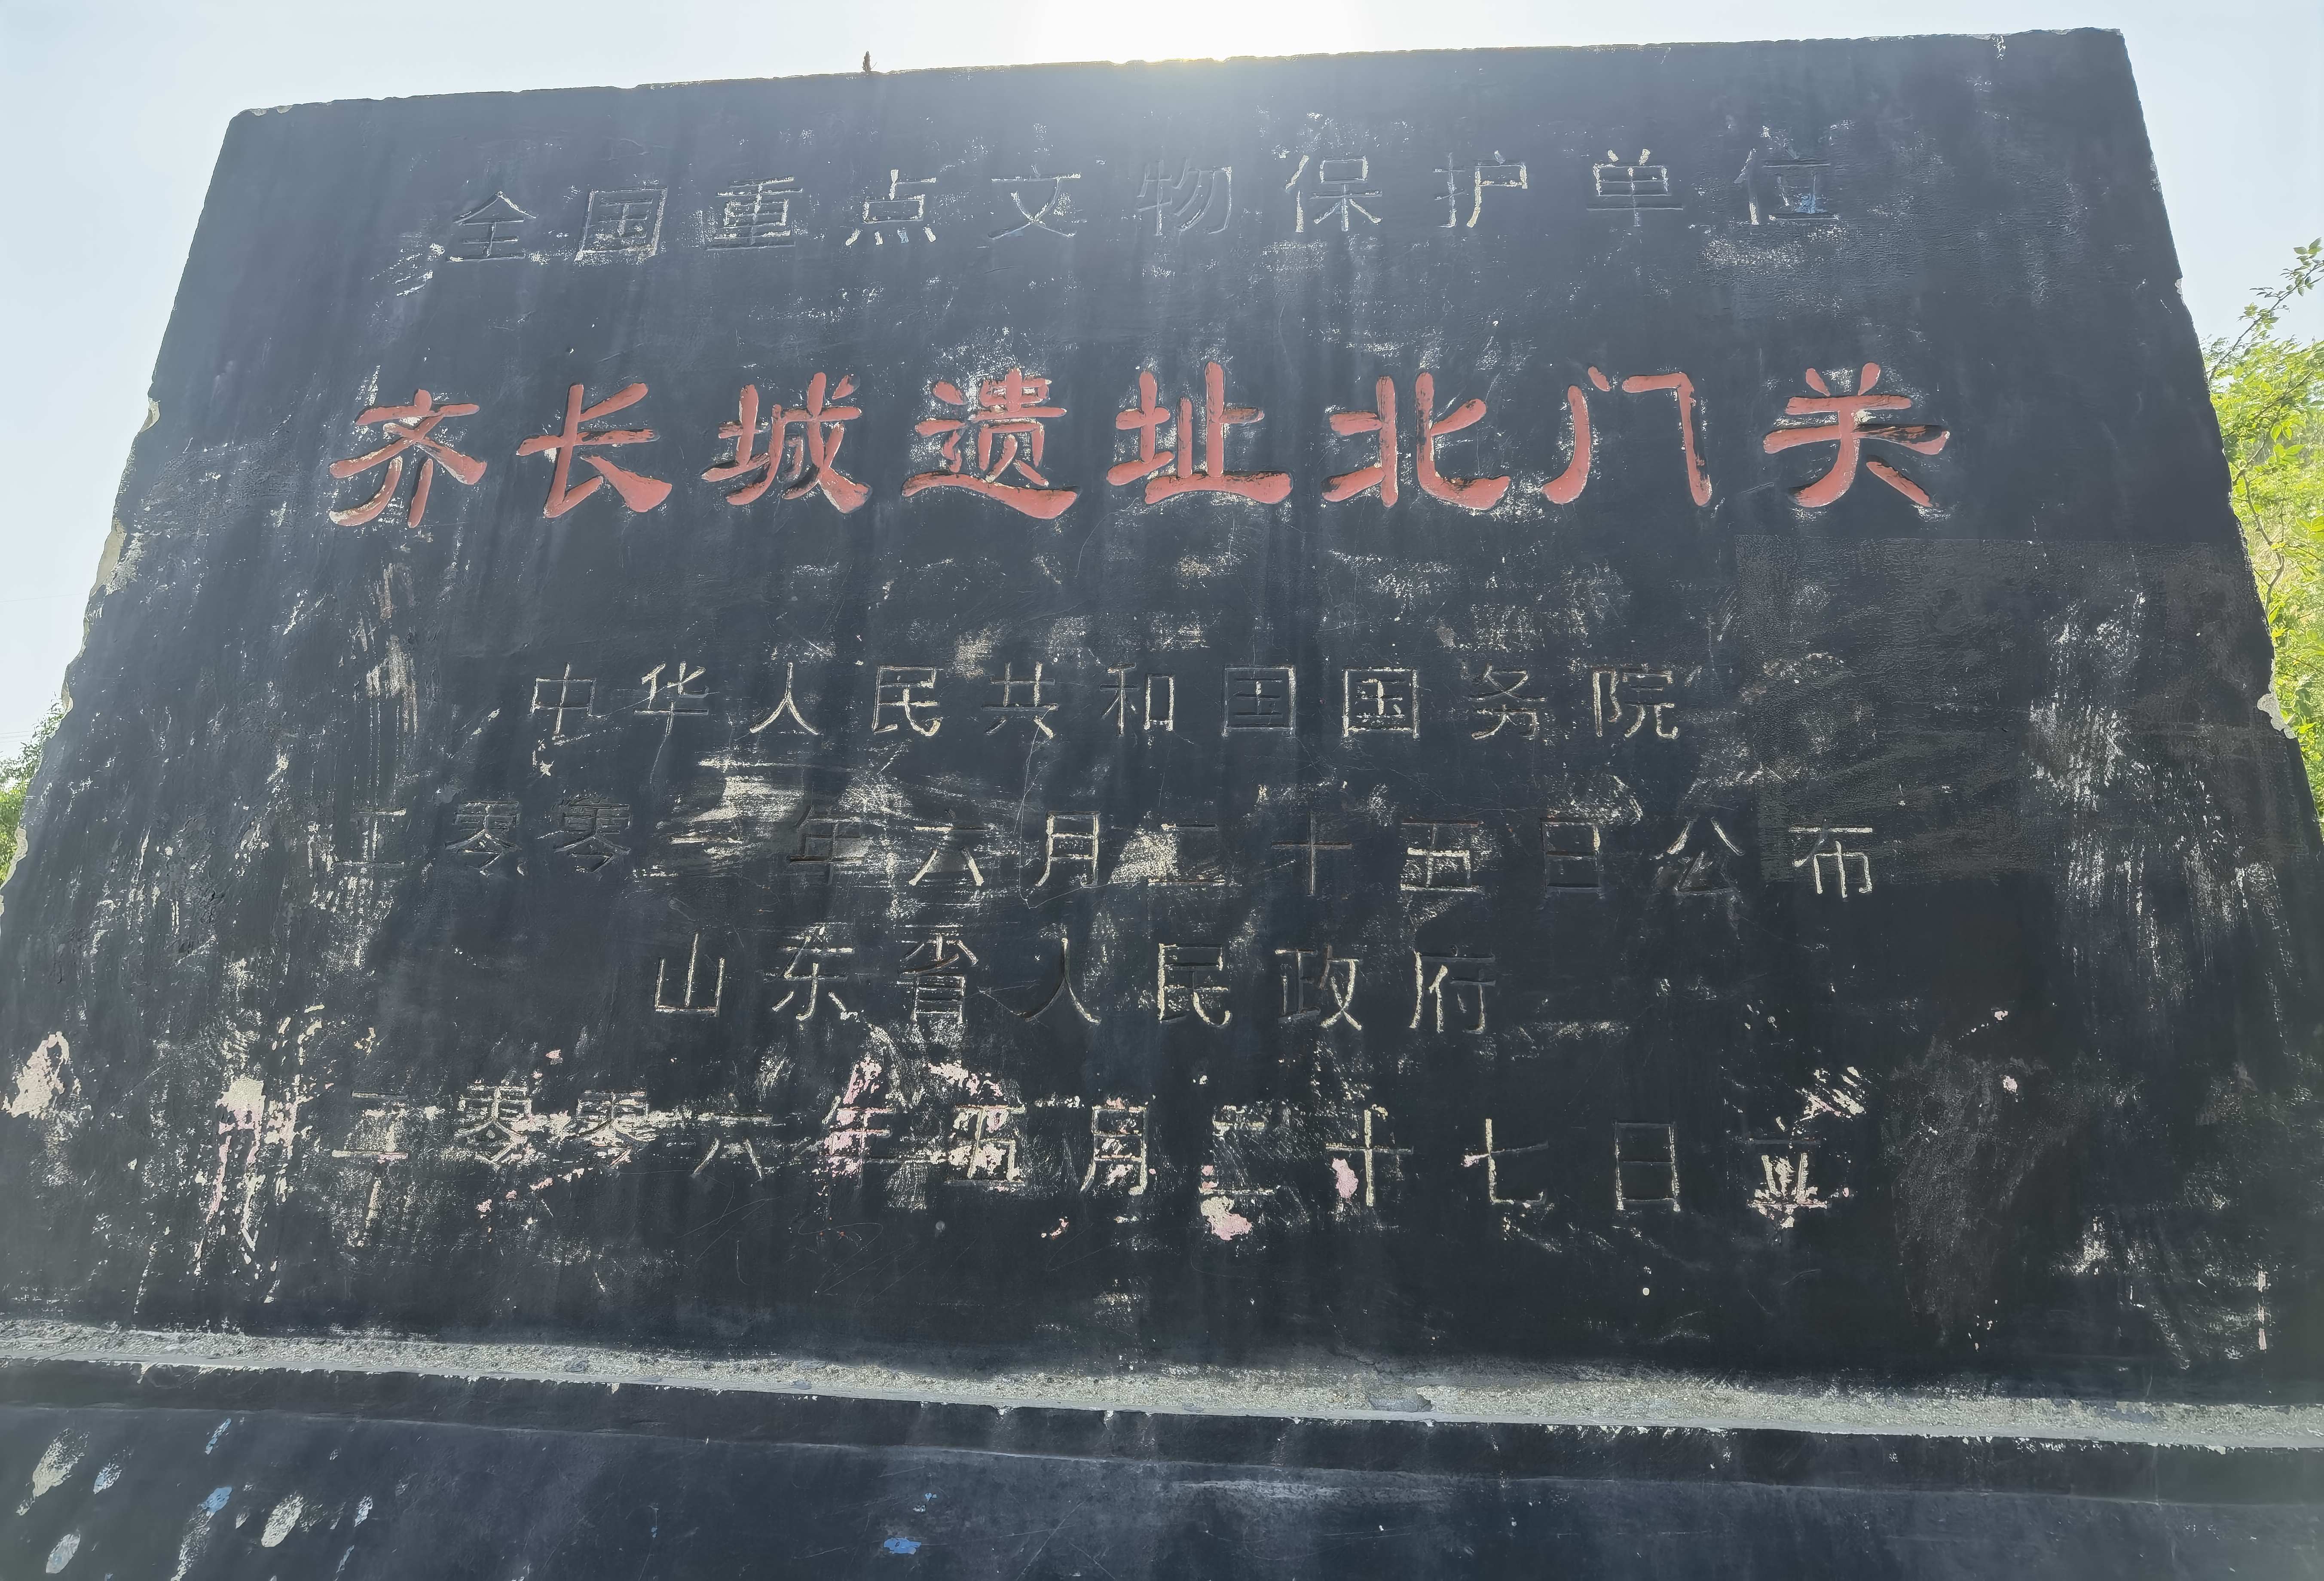 全国重点文物保护单位
齐长城遗址北门关
中华人民共和国国务院
二零零一年六月二十五日公布
山东省人民政府
二零零六年五月二十七日立